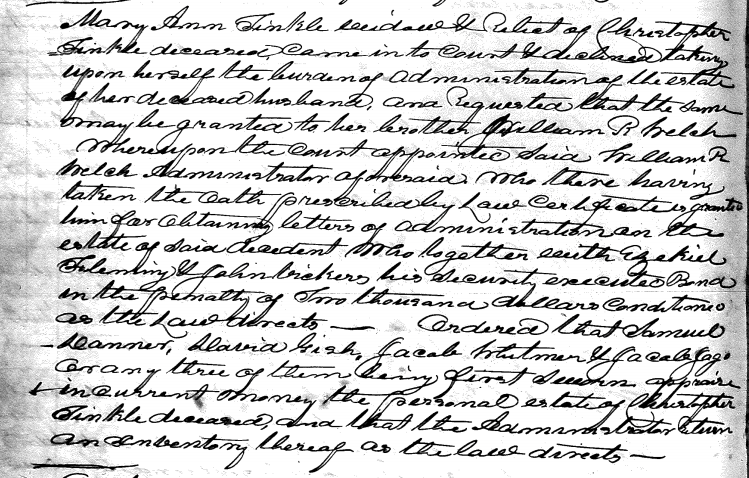 Mary Ann Tinkle widow & Relict of Christopher
Tinkle deceased, came in to Court & declined taking
upon herself the burden of administration of the estate
of her deceased husband, and Requested that the same
may be granted to her brother William R Welch
Whereupon the Court appointed said William R
Welch Administrator aforesaid. Who there having
taken the Oath prescribed by Law Certificate is granted
him for obtaining letters of administration on the
estate of said decedent Who together with Ezekiel
Fleming & John Vickers his security executed Bond
in the penalty of Two thousand dollars Conditioned
as the Law directs — Ordered that Samuel
Danner, David Kish, Jacob Whitmer & Jacob
Or any three of them being first sworn appraise
in current money the personal estate of Christopher
Tinkle deceased, and that the Administrator return
an Inventory thereof as the law directs —